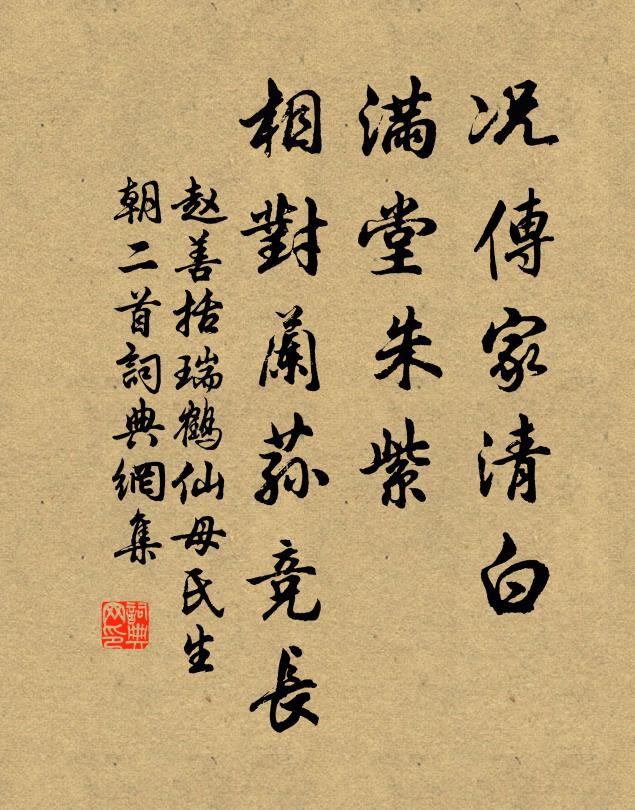 况傳家清白
滿堂朱紫
相對蘭荪竞長
赵善括瑞鶴仙母氏生
朝二首詞典網集
詞典网印